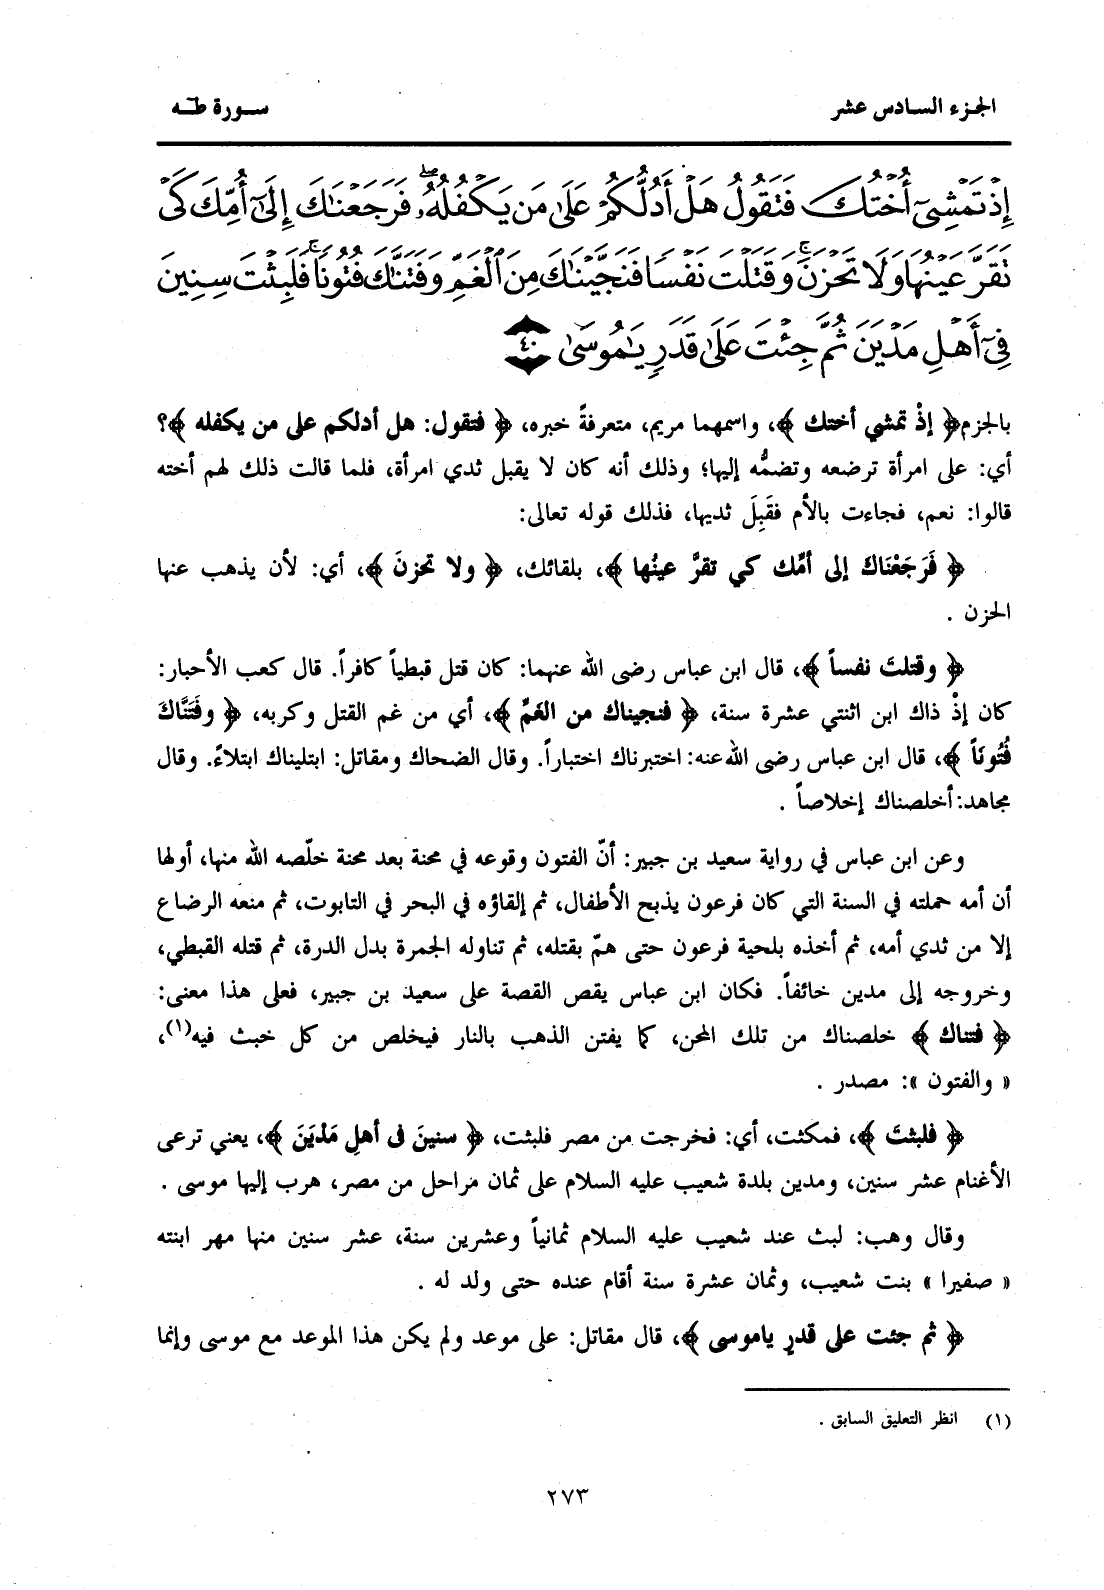 الجزء السادس عشر
سورة طه
إِذْ تَمْشِىٓ أُخْتُكَ فَتَقُولُ هَلْ أَدُلُّكُمْ عَلَىٰ مَن يَكْفُلُهُۥ ۖ فَرَجَعْنَٰكَ إِلَىٰٓ أُمِّكَ كَىْ
تَقَرَّ عَيْنُهَا وَلَا تَحْزَنَ ۚ وَقَتَلْتَ نَفْسًا فَنَجَّيْنَٰكَ مِنَ ٱلْغَمِّ وَفَتَنَّٰكَ فُتُونًا ۚ فَلَبِثْتَ سِنِينَ
فِىٓ أَهْلِ مَدْيَنَ ثُمَّ جِئْتَ عَلَىٰ قَدَرٍ يَٰمُوسَىٰ ٤٠
بالجزم ﴿ إذْ تمشي أختك ﴾، واسمهما مريم، متعرفةً خبره، ﴿ فتقول: هل أدلكم على من يكفله ﴾؟
أي: على امرأة ترضعه وتضمُّه إليها؛ وذلك أنه كان لا يقبل ثدي امرأة، فلما قالت ذلك لهم أخته
قالوا: نعم، فجاءت بالأم فقَبِلَ ثديها، فذلك قوله تعالى:
﴿ فَرَجَعْنَاكَ إلى أمِّك كي تقرَّ عينُها ﴾، بلقائك، ﴿ ولا تحزنَ ﴾، أي: لأن يذهب عنها
الحزن .
﴿ وقتلتَ نفساً ﴾، قال ابن عباس رضى الله عنهما: كان قتل قبطياً كافراً. قال كعب الأحبار:
كان إذْ ذاك ابن اثنتي عشرة سنة، ﴿ فنجيناك من الغَمِّ ﴾، أي من غم القتل وكربه، ﴿ وفَتَنَّاكَ
فُتُونَاً ﴾، قال ابن عباس رضى الله عنه: اختبرناك اختباراً. وقال الضحاك ومقاتل: ابتليناك ابتلاءً. وقال
مجاهد: أخلصناك إخلاصاً .
وعن ابن عباس في رواية سعيد بن جبير: أنّ الفتون وقوعه في محنة بعد محنة خلّصه الله منها، أولها
أن أمه حملته في السنة التي كان فرعون يذبح الأطفال، ثم إلقاؤه في البحر في التابوت، ثم منعه الرضاع
إلا من ثدي أمه، ثم أخذه بلحية فرعون حتى همّ بقتله، ثم تناوله الجمرة بدل الدرة، ثم قتله القبطي،
وخروجه إلى مدين خائفاً. فكان ابن عباس يقص القصة على سعيد بن جبير، فعلى هذا معنى:
﴿ فتناك ﴾ خلصناك من تلك المحن، كما يفتن الذهب بالنار فيخلص من كل خبث فيه(١)،
« والفتون »: مصدر .
﴿ فلبثتَ ﴾، فمكثت، أي: فخرجت من مصر فلبثت، ﴿ سنينَ فى أهلِ مَدْيَنَ ﴾، يعني ترعى
الأغنام عشر سنين، ومدين بلدة شعيب عليه السلام على ثمان مراحل من مصر، هرب إليها موسى .
وقال وهب: لبث عند شعيب عليه السلام ثمانياً وعشرين سنة، عشر سنين منها مهر ابنته
« صفيرا » بنت شعيب، وثمان عشرة سنة أقام عنده حتى ولد له .
﴿ ثم جئت على قدرٍ ياموسى ﴾، قال مقاتل: على موعد ولم يكن هذا الموعد مع موسى وإنما
(١) انظر التعليق السابق .
٢٧٣